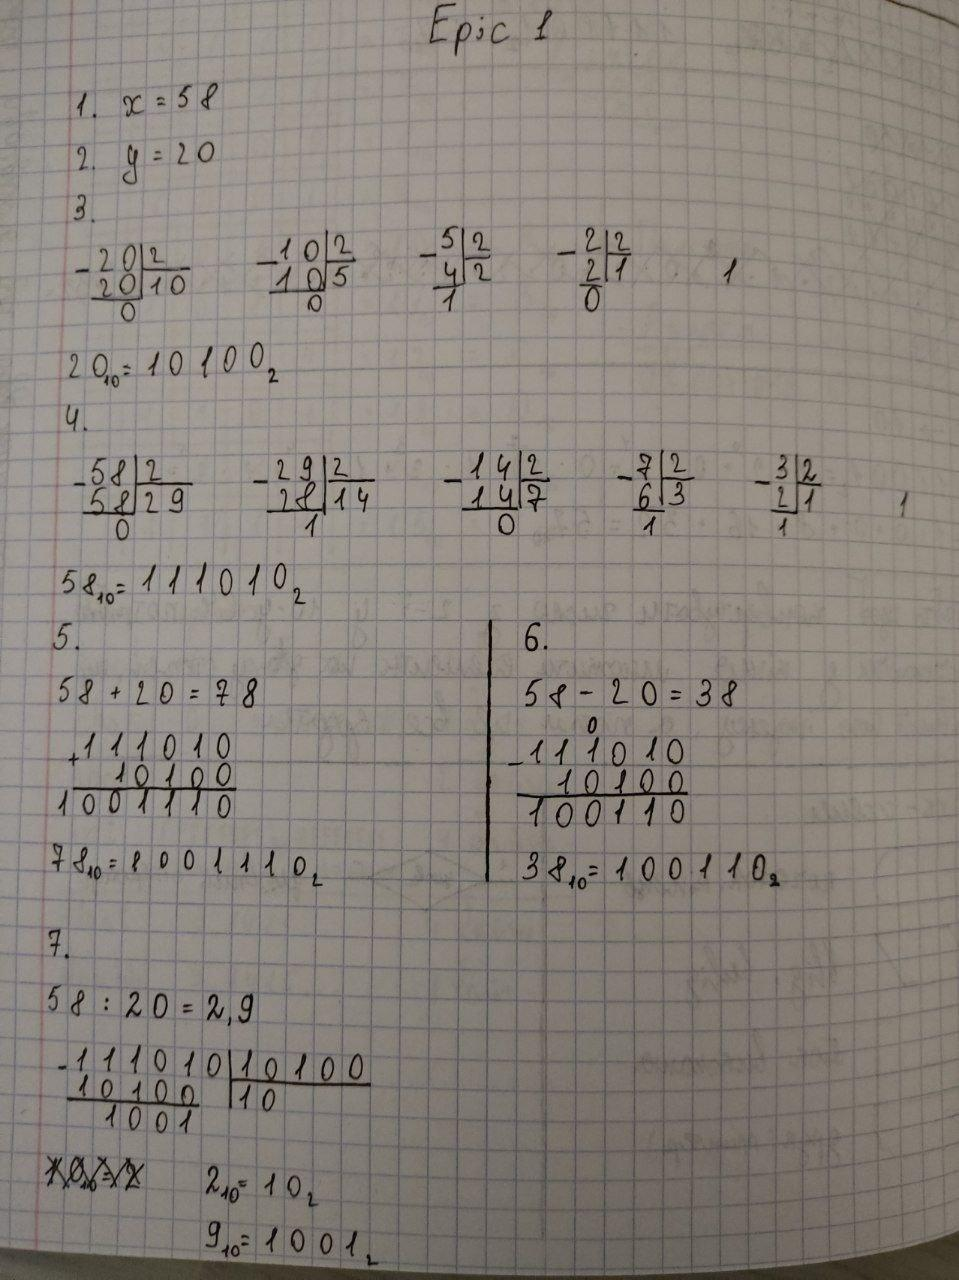 Epic 1
1. x = 58
2. y = 20
3.
- 20 | 2 - 10 | 2 - 5 | 2 - 2 | 2
20 | 10 10 | 5 4 | 2 2 | 1 1
0 0 1 0
20₁₀ = 10100₂
4.
- 58 | 2 - 29 | 2 - 14 | 2 - 7 | 2 - 3 | 2
58 | 29 28 | 14 14 | 7 6 | 3 2 | 1 1
0 1 0 1 1
58₁₀ = 111010₂
5.
58 + 20 = 78
+ 111010
10100
1001110
78₁₀ = 1001110₂
6.
58 - 20 = 38
0
- 111010
10100
100110
38₁₀ = 100110₂
7.
58 : 20 = 2,9
- 111010 | 10100
10100 | 10
1001
2₁₀ = 10₂
9₁₀ = 1001₂